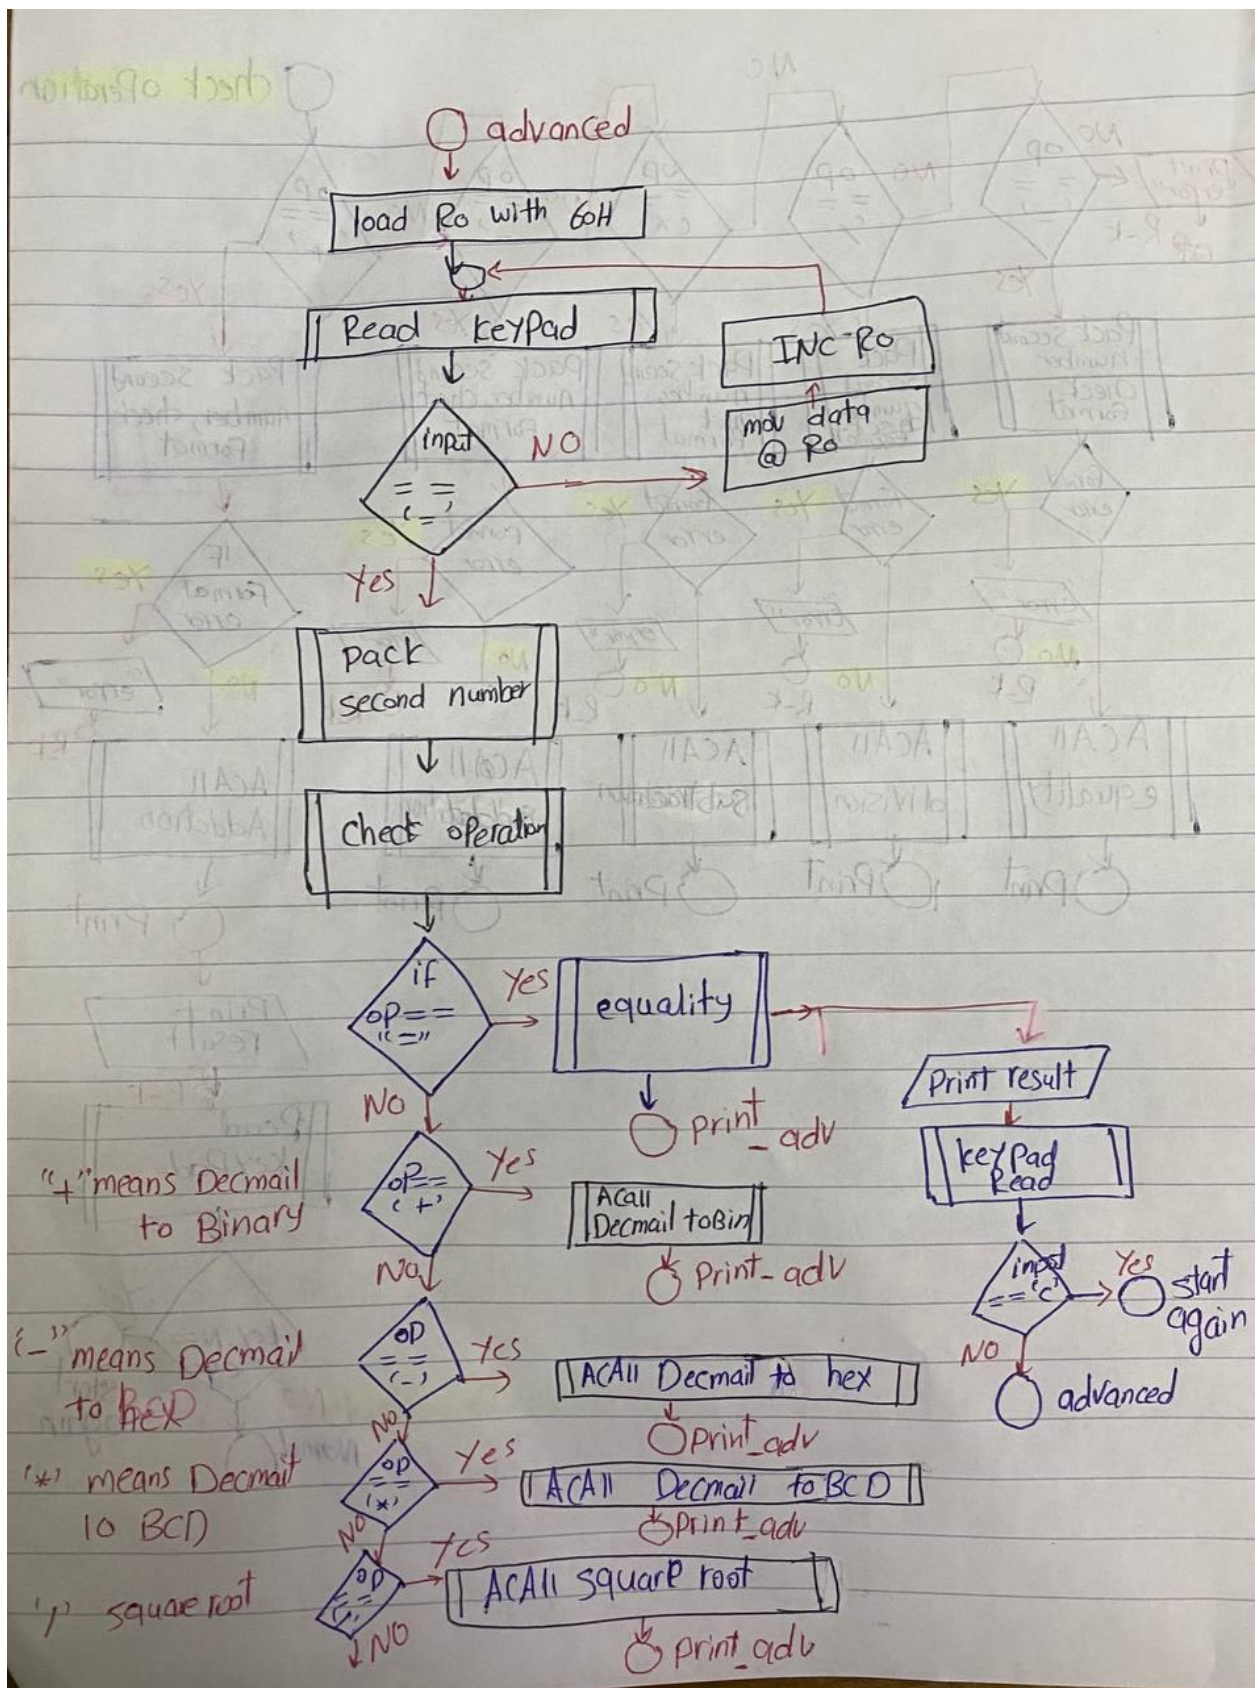 advanced
load Ro with 60H
Read keypad
INC RO
mov data
@ Ro
input
= =
'='
NO
Yes
pack
second number
check operation
if
op==
"="
Yes
equality
NO
print
_adv
Print result
keypad
Read
input
=='c'
Yes
start
again
NO
advanced
"+" means Decmail
to Binary
op==
'+'
Yes
Acall
Decmail toBin
Print-adv
NO
"-" means Decmail
to hex
op
==
'-'
Yes
ACAll Decmail to hex
print_adv
NO
'*' means Decmail
to BCD
op
==
'*'
Yes
ACAll Decmail to BCD
print_adv
NO
square root
op
==
Yes
ACAll square root
NO
print_adv